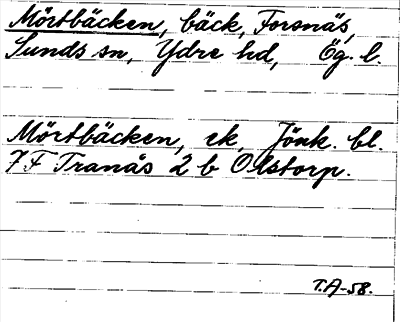 Mörtbäcken, bäck, Forsnäs,
Sunds sn, Ydre hd, Ög. l.
Mörtbäcken, ek, Jönk. bl.
7 F Tranås 2 b Olstorp.
T.A-58.